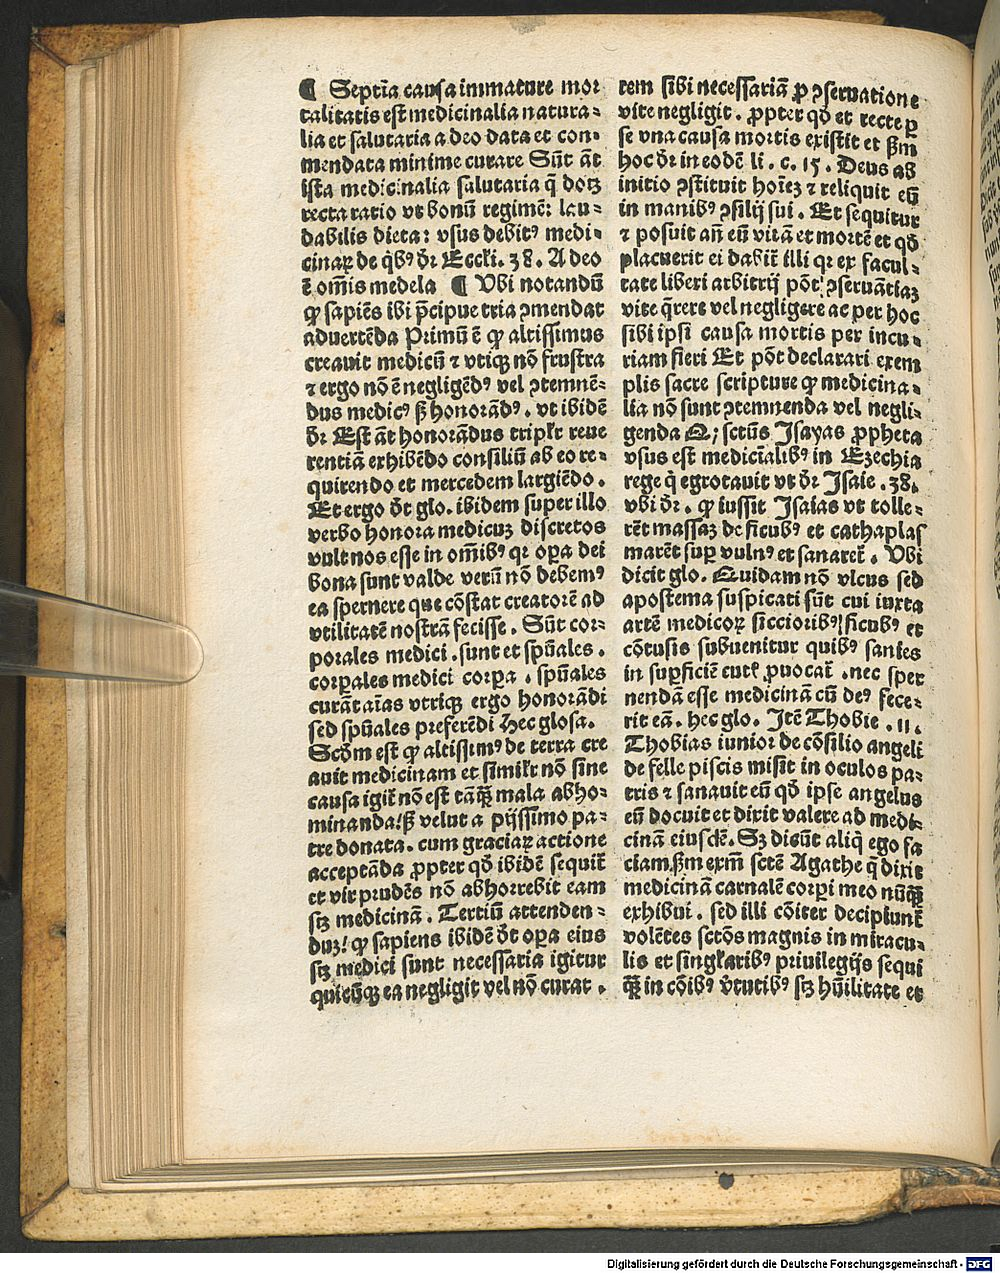 ¶ Septīa causa immature mor
talitatis est medicinalia natura-
lia et salutaria a deo data et com-
mendata minime curare Sūt āt
ista medicinalia salutaria q̄ docꝫ
recta ratio vt bonū regimē: lau-
dabilis dieta: vsus debitꝰ medi-
cinaꝝ de qͥbꝰ dr̄ Eccli. 38. A deo
ē om̄is medela ¶ Vbi notandū
ꝙ sapiēs ibi p̄cipue tria ꝯmendat
aduertēda Primū ē ꝙ altissimus
creauit medicū ⁊ vtiqꝫ nō frustra
⁊ ergo nō ē negligēdꝰ vel ꝯtemnē-
dus medicꝰ sꝫ honorādꝰ. vt ibidē
dr̄ Est āt honorādus triplr̄ reue
rentiā exhibēdo consiliū ab eo re-
quirendo et mercedem largiēdo.
Et ergo dt̄ glo. ibidem super illo
verbo honora medicuꝫ discretos
vult nos esse in om̄ibꝰ qr oꝑa dei
bona sunt valde verū nō debemꝰ
ea spernere que cōstat creatorē ad
vtilitatē nostrā fecisse. Sūt cor-
porales medici. sunt et spūales.
corꝑales medici corꝑa. spūales
curāt aīas vtriqꝫ ergo honorādi
sed spūales preferēdi Hec glosa.
Scd̄m est ꝙ altissimꝰ de terra cre
auit medicinam et similr̄ nō sine
causa igit̄ nō est tāꝙ̄ mala abho-
minanda! sꝫ velut a pijssimo pa-
tre donata. cum graciaꝝ actione
acceptāda ꝓpter qd̄ ibidē sequit̄
et vir prudēs nō abhorrebit eam
scꝫ medicinā. Tertiū attenden-
duꝫ! ꝙ sapiens ibidē dt̄ oꝑa eius
scꝫ medici sunt necessaria igitur
quicūqꝫ ea negligit vel nō curat.
tem sibi necessariā ꝓ ꝯseruatione
vite negligit. ꝓpter qd̄ et recte ꝑ
se vna causa mortis existit et sꝫm
hoc dr̄ in eodē li. c. 15. Deus ab
initio ꝯstituit hoīeꝫ ⁊ reliquit eū
in manibꝰ ꝯsilij sui. Et sequitur
⁊ posuit an̄ eū vitā et mortē et qd̄
placuerit ei dabit̄ illi qr ex facul-
tate liberi arbitrij pōt! ꝯseruātiaꝫ
vite q̄rere vel negligere ac per hoc
sibi ipsi causa mortis per incu-
riam fieri Et pōt declarari exem
plis sacre scripture ꝙ medicina-
lia nō sunt ꝯtemnenda vel negli-
genda Q; sctūs Isayas ꝓpheta
vsus est medicīalibꝰ in Ezechia
rege q̄ egrotauit vt dr̄ Isaie. 38.
vbi dr̄. ꝙ iussit Isaias vt tolle-
rēt massaꝫ de ficubꝰ et cathaplas
marēt suꝑ vulnꝰ et sanaret̄. Vbi
dicit glo. Quidam nō vlcus sed
apostema suspicati sūt cui iuxta
artē medicoꝝ siccioribꝰ! ficubꝰ et
cōtusis subuenitur quibꝰ sanies
in suꝑficiē cutꝭ ꝓuocat̄. nec sper
nendā esse medicinā cū deꝰ fece-
rit eā. hec glo. Itē Thobie. 11.
Thobias iunior de cōsilio angeli
de felle piscis misit in oculos pa-
tris ⁊ sanauit eū qd̄ ipse angelus
eū docuit et dixit valere ad medi-
cinā eiusdē. Sꝫ dicūt aliq̄ ego fa
ciam sꝫm exm̄ sctē Agathe q̄ dixit
medicinā carnalē corꝑi meo nūꝙ̄
exhibui. sed illi cōiter decipiunt̄
volētes sctōs magnis in miracu-
lis et singl̄aribꝰ priuilegijs sequi
ꝙ̄ in cōibꝰ v̄tutibꝰ scꝫ hūilitate et
Digitalisierung gefördert durch die Deutsche Forschungsgemeinschaft - DFG